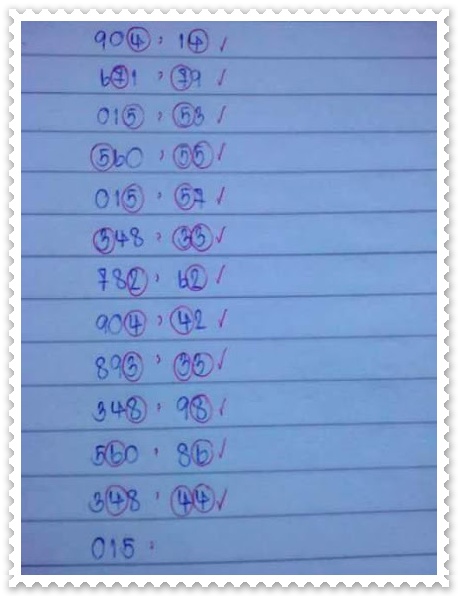 904 : 14 ✓
671 : 79 ✓
015 : 53 ✓
560 : 55 ✓
015 : 57 ✓
348 : 33 ✓
782 : 62 ✓
904 : 42 ✓
893 : 35 ✓
348 : 98 ✓
560 : 86 ✓
348 : 44 ✓
015 :